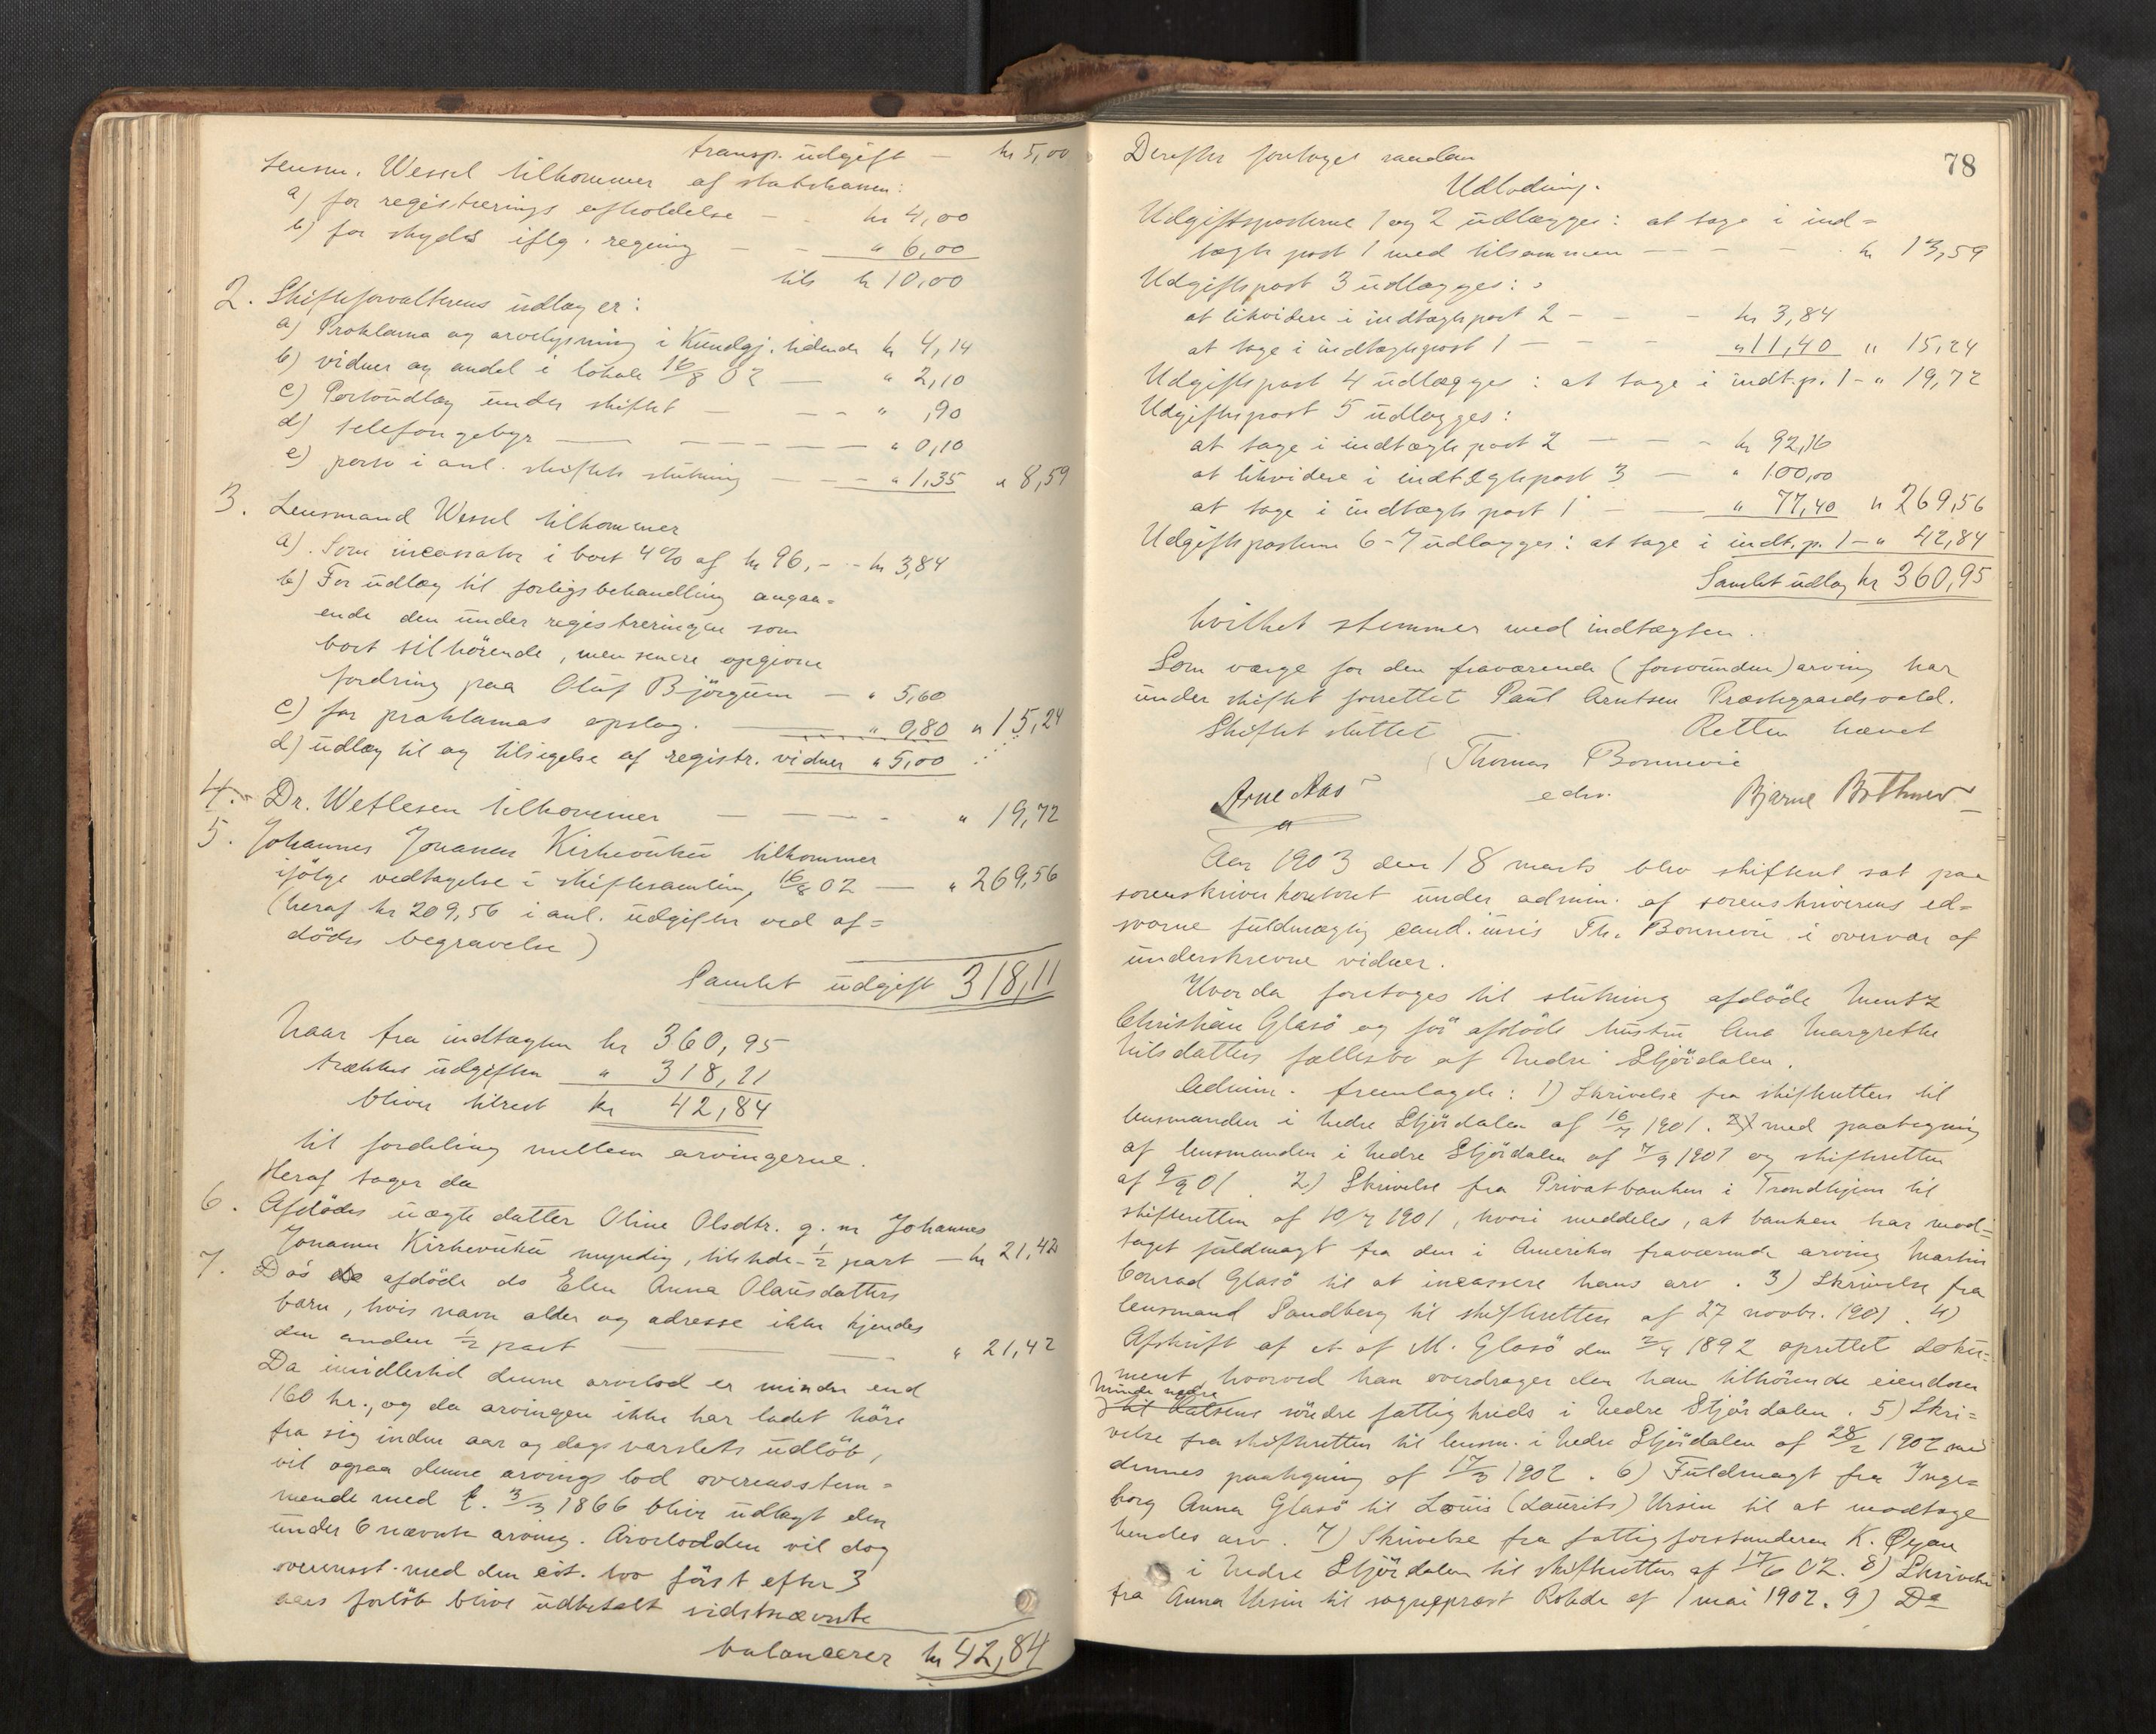 transp. udgift — kr 5,00
Lensm. Wessel tilkommer af statskassen:
a) for registrerings afholdelse - - kr 4,00
b) for skyds iflg. regning - - " 6,00
tils kr 10,00
2. Skifteforvalterens udlæg er:
a) Proklama og arvelysning i Kundgj. tidende kr 4,14
b) vidner og andel i lokale 16/8 02 — " 2,10
c) Portoudlæg under skiftet — - - " ,90
d) telefongebyr — — — — — " 0,10
e) porto i anl. skiftets slutning — - - " 1,35 " 8,59
3. Lensmand Wessel tilkommer
a). Som incassator i boet 4% af kr 96,- - kr 3,84
b) For udlæg til forligsbehandling angaa=
ende den under registreringen som
boet tilhörende, men senere opgivne
fordring paa Oluf Björgum — " 5,60
c) for proklamas opslag. — " 0,80 " 15,24
d) udlæg til og tilsigelse af registr. vidner " 5,00
4. Dr. Wetlesen tilkommer — — — - " 19,72
5. Johannes Jonassen Kirkevukü tilkommer
ifölge vedtagelse i skiftesamling 16/8 02 — " 269,56
(heraf kr 209,56 i anl. udgifter ved af=
dödes begravelse)
Samlet udgift 318,11
Naar fra indtægten kr 360,95
trækkes udgiften " 318,11
bliver tilrest kr 42,84
til fordeling mellem arvingerne.
Heraf tager da
6. Afdödes uægte datter Oline Olsdtr. g. m Johannes
Jonassen Kirkevukü myndig, tilstede - 1/2 part — kr 21,42
7. Dös afdöde do Elen Anna Olausdatters
barn, hvis navn alder og adresse ikke kjendes
den anden 1/2 part — — " 21,42
Da imidlertid denne arvelod er mindre end
160 kr., og da arvingen ikke har ladet höre
fra sig inden aar og dags varslets udlöb,
vil ogsaa denne arvings lod overensstem=
mende med l. 3/3 1866 blive udlagt den
under 6 nævnte arving. Arvelodden vil dog
overensst. med den cit. lov först efter 3
aars forlöb blive udbetalt sidstnævnte
balancerer kr 42,84
78
Derefter foretoges saadan
Udlodning.
Udgiftsposterne 1 og 2 udlægges: at tage i ind=
tægts post 1 med tilsammen — — - - kr 13,59
Udgiftspost 3 udlægges:
at likvidere i indtægtspost 2 - - - kr 3,84
at tage i indtægtspost 1 — - - " 11,40 " 15,24
Udgiftspost 4 udlægges: at tage i indt.p. 1 - " 19,72
Udgiftspost 5 udlægges:
at tage i indtægts post 2 — - - kr 92,16
at likvidere i indtægtspost 3 — " 100,00
at tage i indtægts post 1 — — " 77,40 " 269,56
Udgiftsposterne 6-7 udlægges: at tage i indt.p. 1 - " 42,84
Samlet udlæg kr 360,95
hvilket stemmer med indtægten.
Som værge for den fraværende (forsvundne) arving har
under skiftet forrettet Paul Arntsen Præstegaardsvald.
Skiftet sluttet Retten hævet
Thomas Bonnevie
edsv.
Arne Aas Bjarne Bothner
Aar 1903 den 18 marts blev skifteret sat paa
sorenskriverkontoret under admin. af sorenskriverens ed=
svorne fuldmægtig cand. juris Th. Bonnevie i overvær af
underskrevne vidner.
Hvorda foretoges til slutning afdöde Mentz
Christian Glasö og för afdöde hustru Ana Margrethe
Nilsdatters fællesbo af Nedre Stjördalen.
Admin. fremlagde: 1) Skrivelse fra skifteretten til
lensmanden i Nedre Stjördalen af 16/7 1901. med paategning
af lensmanden i Nedre Stjördalen af 7/9 1901 og skifteretten
af 9/9 01. 2) Skrivelse fra Privatbanken i Trondhjem til
skifteretten af 10/7 1901, hvori meddeles, at banken har mod=
taget fuldmagt fra den i Amerika fraværende arving Martin
Conrad Glasö til at incassere hans arv. 3) Skrivelse fra
lensmand Sandberg til skifteretten af 27 novbr. 1901. 4)
Afskrift af et af M. Glasö den 2/4 1892 oprettet doku=
ment hvorved han overdrager den ham tilhörende eiendom
söndre fattigkreds i Nedre Stjördalen. 5) Skri=
velse fra skifteretten til lensm. i Nedre Stjördalen af 28/2 1902 med
dennes paategning af 17/3 1902. 6) Fuldmagt fra Inge=
borg Anna Glasö til Louis (Laurits) Ursin til at modtage
hendes arv. 7) Skrivelse fra fattigforstanderen K. Øyan
i Nedre Stjördalen til skifteretten af 17/6 02. 8) Skrivelse
fra Anna Ursin til sogneprest Rohde af 1 mai 1902. 9) Do